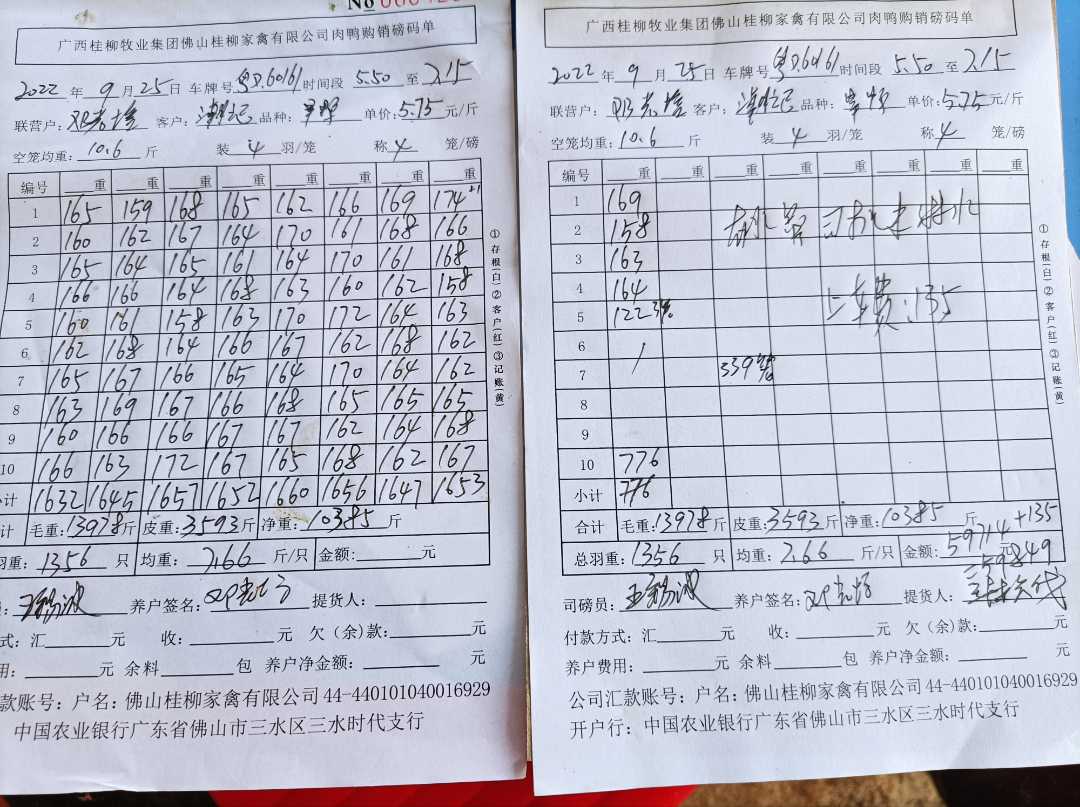 No
广西桂柳牧业集团佛山桂柳家禽有限公司肉鸭购销磅码单
2022 年 9 月 25 日 车牌号 粤D.60161 时间段 5.50 至 7.15
联营户: 客户: 品种: 单价: 5.75 元/斤
空笼均重: 10.6 斤 装 4 羽/笼 称 4 笼/磅
编号 重 重 重 重 重 重 重 重
1 165 159 168 165 162 166 169 174 +1
2 160 162 167 164 170 161 168 166
3 165 164 165 161 164 170 161 168
4 166 166 164 168 163 160 162 158
5 160 161 158 163 170 172 164 163
6 162 168 164 166 167 162 168 162
7 165 167 166 165 164 170 164 162
8 163 169 167 166 168 165 165 165
9 160 166 166 167 167 162 164 168
10 166 163 172 167 165 168 162 167
小计 1632 1645 1657 1652 1660 1656 1647 1653
计 毛重: 13978 斤 皮重: 3593 斤 净重: 10385 斤
羽重: 1356 只 均重: 7.66 斤/只 金额: 元
养户签名: 提货人:
式: 汇 元 收: 元 欠(余)款: 元
用: 元 余料 包 养户净金额: 元
款账号: 户名: 佛山桂柳家禽有限公司 44-440101040016929
中国农业银行广东省佛山市三水区三水时代支行
①存根(白)②客户(红)③记账(黄)
广西桂柳牧业集团佛山桂柳家禽有限公司肉鸭购销磅码单
2022 年 9 月 25 日 车牌号 粤D.60161 时间段 5.50 至 7.15
联营户: 客户: 品种: 单价: 5.75 元/斤
空笼均重: 10.6 斤 装 4 羽/笼 称 4 笼/磅
编号 重 重 重 重 重 重 重 重
1 169
2 158
3 163
4 164
5 122 3笼
上车费: 135
6
7 339笼
8
9
10 776
小计 776
合计 毛重: 13978 斤 皮重: 3593 斤 净重: 10385 斤
总羽重: 1356 只 均重: 7.66 斤/只 金额: 59714 +135 元
=59849
司磅员: 养户签名: 提货人:
付款方式: 汇 元 收: 元 欠(余)款: 元
养户费用: 元 余料 包 养户净金额: 元
公司汇款账号: 户名: 佛山桂柳家禽有限公司 44-440101040016929
开户行: 中国农业银行广东省佛山市三水区三水时代支行
①存根(白)②客户(红)③记账(黄)